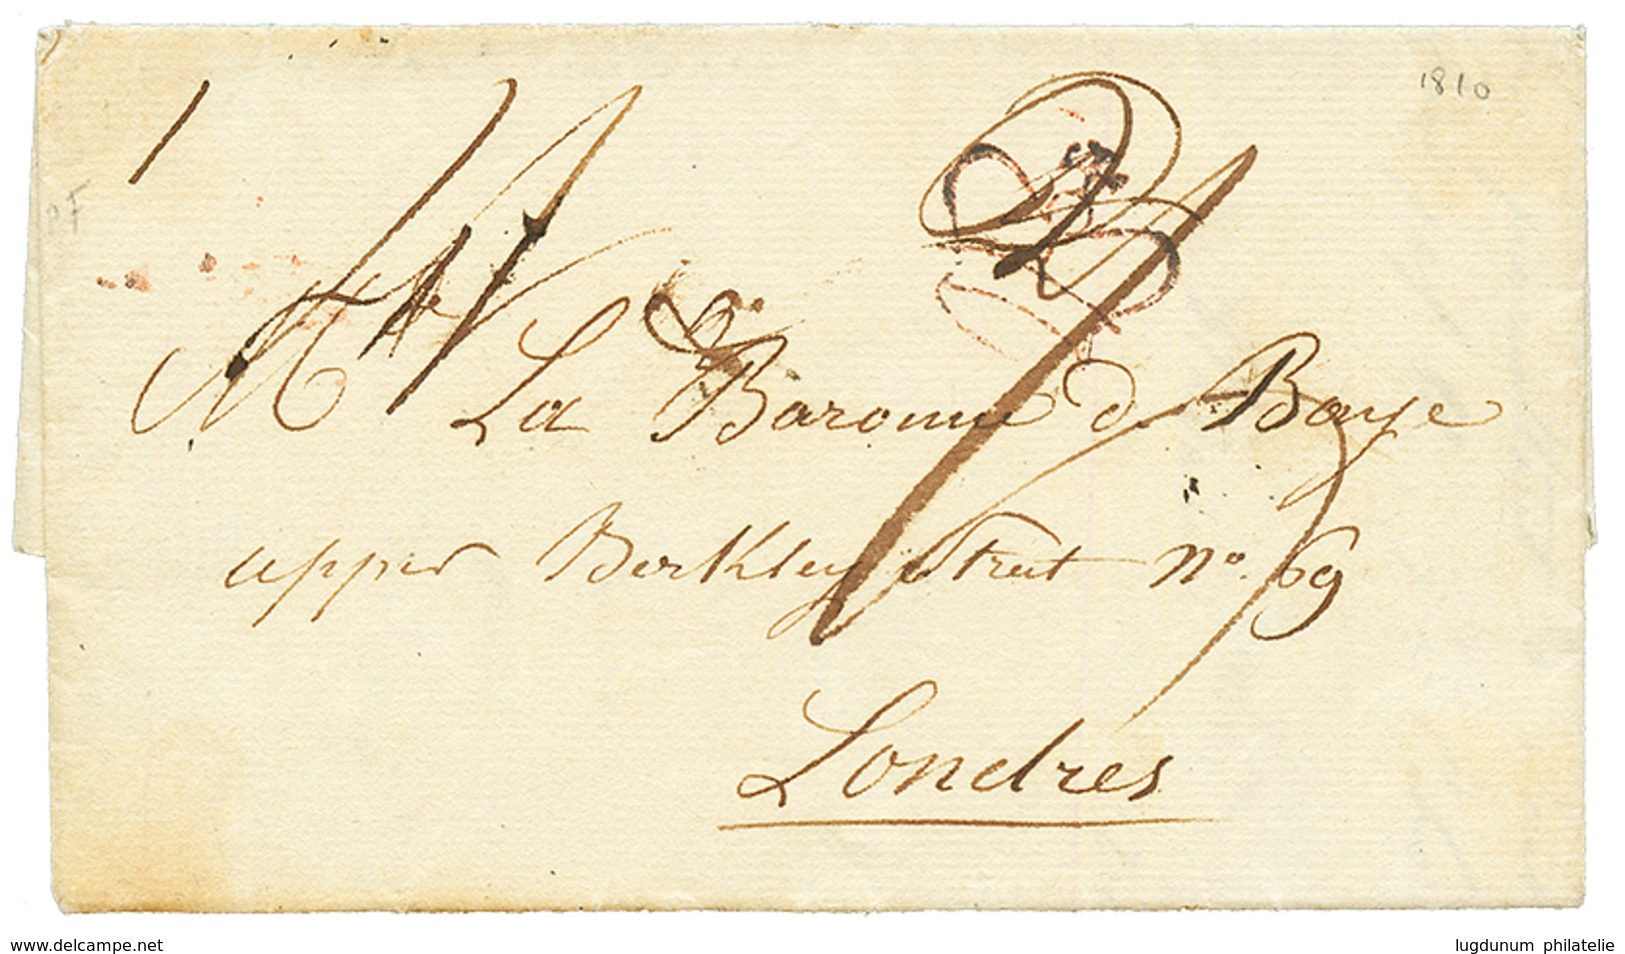 1810
PF
La Baronne de Baye
upper Berkley Street No. 69
Londres
www.delcampe.net
lugdunum philatelie